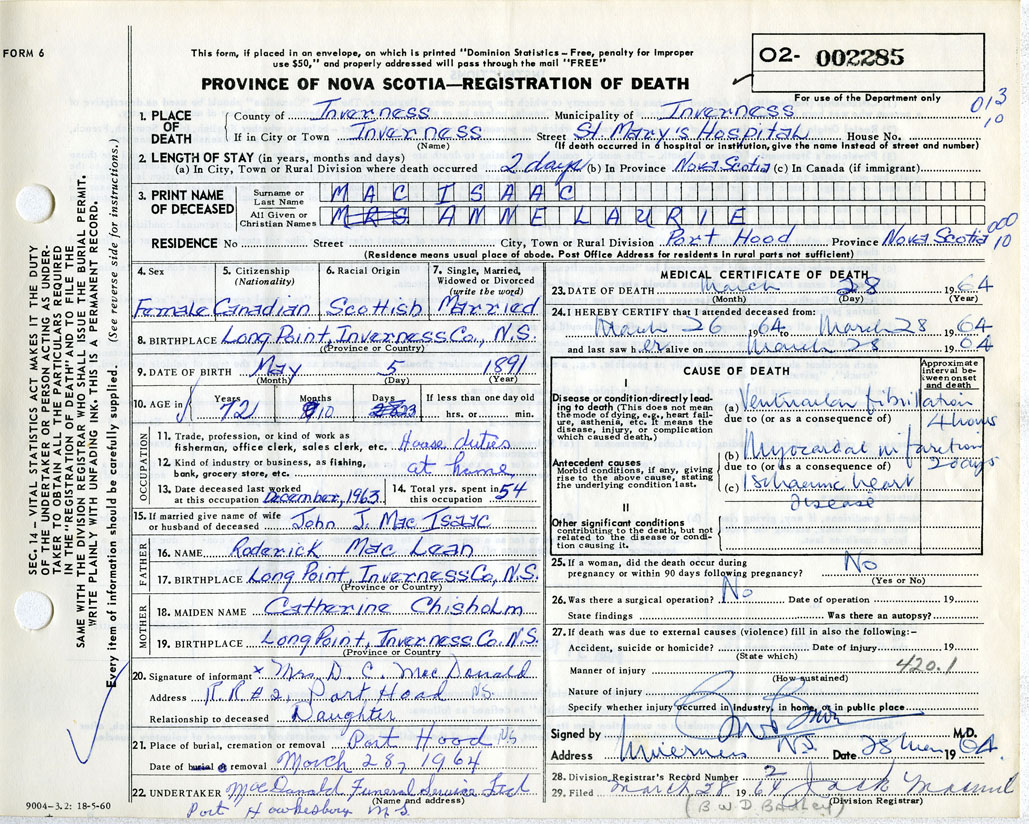 FORM 6
This form, if placed in an envelope, on which is printed "Dominion Statistics – Free, penalty for improper
use $50," and properly addressed will pass through the mail "FREE"
PROVINCE OF NOVA SCOTIA—REGISTRATION OF DEATH
02- 002285
For use of the Department only
013
10
1. PLACE OF DEATH
County of Inverness Municipality of Inverness
If in City or Town Inverness Street St. Mary's Hospital House No.
(Name) (If death occurred in a hospital or institution, give the name instead of street and number)
2. LENGTH OF STAY (in years, months and days)
(a) In City, Town or Rural Division where death occurred 2 days (b) In Province Nova Scotia (c) In Canada (if immigrant)
3. PRINT NAME OF DECEASED
Surname or Last Name MAC ISAAC
All Given or Christian Names MRS ANNE LAURIE
RESIDENCE No Street City, Town or Rural Division Port Hood Province Nova Scotia
000
10
(Residence means usual place of abode. Post Office Address for residents in rural parts not sufficient)
4. Sex Female
5. Citizenship (Nationality) Canadian
6. Racial Origin Scottish
7. Single, Married, Widowed or Divorced (write the word) Married
8. BIRTHPLACE Long Point, Inverness Co., N.S.
(Province or Country)
9. DATE OF BIRTH May 5 1891
(Month) (Day) (Year)
10. AGE in Years 72 Months 10 Days 23 If less than one day old hrs. or min.
OCCUPATION
11. Trade, profession, or kind of work as fisherman, office clerk, sales clerk, etc. House duties
12. Kind of industry or business, as fishing, bank, grocery store, etc. at home
13. Date deceased last worked at this occupation December, 1963
14. Total yrs. spent in this occupation 54
15. If married give name of wife or husband of deceased John J. Mac Isaac
FATHER
16. NAME Roderick Mac Lean
17. BIRTHPLACE Long Point, Inverness Co, N.S.
(Province or Country)
MOTHER
18. MAIDEN NAME Catherine Chisholm
19. BIRTHPLACE Long Point, Inverness Co. N.S.
(Province or Country)
20. Signature of informant x Mrs. D. C. MacDonald
Address R.R #2, Port Hood N.S.
Relationship to deceased Daughter
21. Place of burial, cremation or removal Port Hood NS
Date of burial or removal March 28, 1964
22. UNDERTAKER MacDonald Funeral Service Ltd
(Name and address)
Port Hawkesbury N.S.
9004-3.2: 18-5-60
MEDICAL CERTIFICATE OF DEATH
23. DATE OF DEATH March 28 1964
(Month) (Day) (Year)
24. I HEREBY CERTIFY that I attended deceased from:
March 26 1964 to March 28 1964
and last saw her alive on March 28 1964
CAUSE OF DEATH
Approximate interval between onset and death
I
Disease or condition directly leading to death (This does not mean the mode of dying, e.g., heart failure, asthenia, etc. It means the disease, injury, or complication which caused death.)
(a) Ventricular fibrillation
due to (or as a consequence of) 4 hours
Antecedent causes
Morbid conditions, if any, giving rise to the above cause, stating the underlying condition last.
(b) Myocardial infarction
due to (or as a consequence of) 2 days
(c) Ischaemic heart
disease
II
Other significant conditions
contributing to the death, but not related to the disease or condition causing it.
25. If a woman, did the death occur during pregnancy or within 90 days following pregnancy? No
(Yes or No)
26. Was there a surgical operation? No Date of operation 19
State findings Was there an autopsy?
27. If death was due to external causes (violence) fill in also the following:–
Accident, suicide or homicide? Date of injury 19
(State which)
Manner of injury 420.1
(How sustained)
Nature of injury
Specify whether injury occurred in industry, in home, or in public place
Signed by M.D.
Address Inverness N.S. Date 28 Mar 1964
28. Division Registrar's Record Number 2
29. Filed March 28 1964 Jack
(Division Registrar)
SEC. 14 – VITAL STATISTICS ACT MAKES IT THE DUTY
OF THE UNDERTAKER OR PERSON ACTING AS UNDER-
TAKER TO OBTAIN ALL THE PARTICULARS REQUIRED
IN THE "REGISTRATION OF DEATH" AND TO FILE THE
SAME WITH THE DIVISION REGISTRAR WHO SHALL ISSUE THE BURIAL PERMIT.
WRITE PLAINLY WITH UNFADING INK. THIS IS A PERMANENT RECORD.
Every item of information should be carefully supplied. (See reverse side for instructions.)